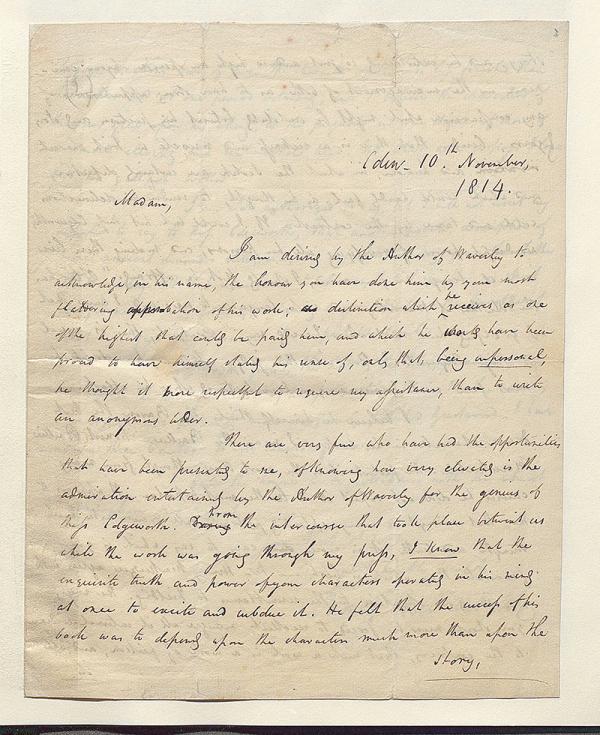 Edinr. 10th. November,
1814.
Madam,
I am desired by the Author of Waverley to
acknowledge, in his name, the honour you have done him by your most
flattering approbation of his work; a distinction which he receives as one
of the highest that could be paid him, and which he would have been
proud to have himself stated his sense of, only that being impersonal,
he thought it more respectful to require my assistance, than to write
an anonymous letter.
There are very few who have had the opportunities
that have been presented to me, of knowing how very elevated is the
admiration entertained by the Author of Waverley for the genius of
Miss Edgeworth. From the intercourse that took place betwixt us
while the work was going through my press, I know that the
exquisite truth and power of your characters operated in his mind
at once to excite and subdue it. He felt that the success of his
book was to depend upon the characters much more than upon the
story,